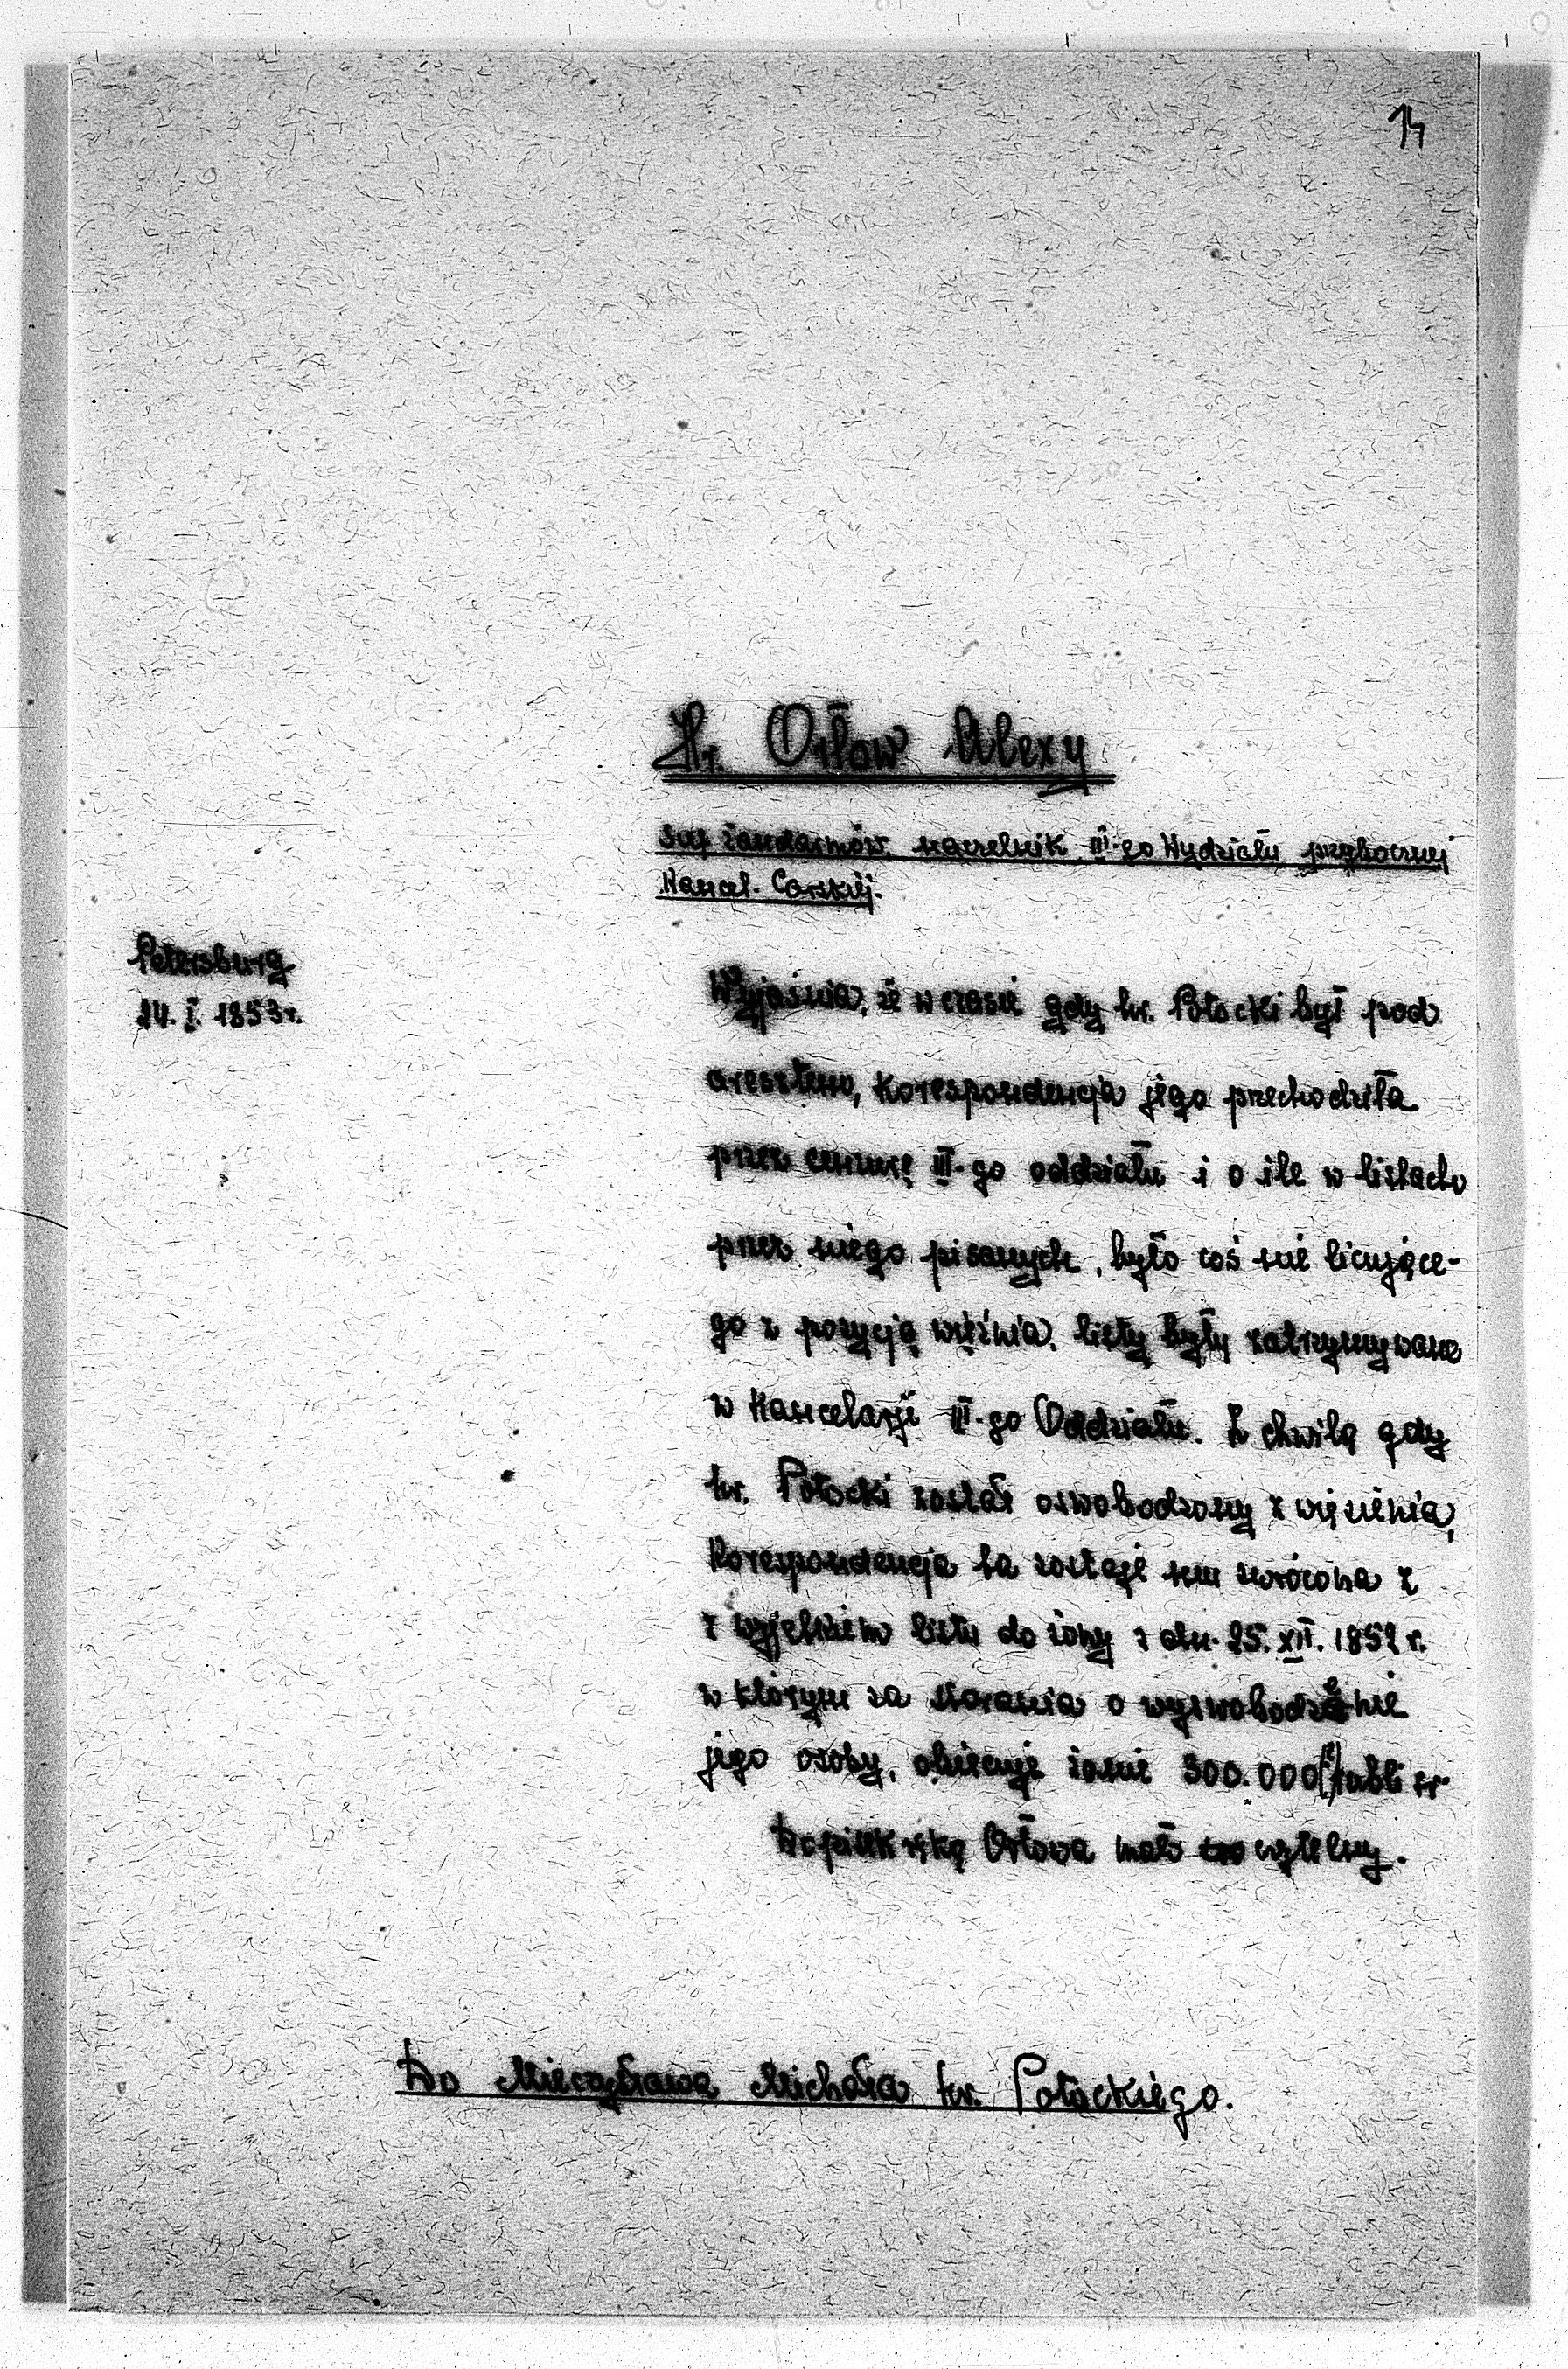 14
Hr. Orłow Alexy
szef żandarmów, naczelnik III-go Wydziału przybocznej
Kancel. Carskiej.
Petersburg
24. I. 1853 r.
Wyjaśnia, że w czasie gdy hr. Potocki był pod
aresztem, korespondencja jego przechodziła
przez cenzurę III-go oddziału i o ile w listach
przez niego pisanych, było coś nie licujące-
go z pozycją więźnia, listy były zatrzymywane
w Kancelarji III-go Oddziału. Z chwilą gdy
hr. Potocki został oswobodzony z więzienia,
korespondencja ta zostaje mu zwrócona z
z wyjątkiem listu do żony z dn. 25. XII. 1852 r.
w którym za starania o wyswobodzenie
jego osoby, obiecuje żonie 300.000 (!) rubli sr.
Dopisek ręką Orłowa mało czytelny.
Do Mieczysława Michała hr. Potockiego.